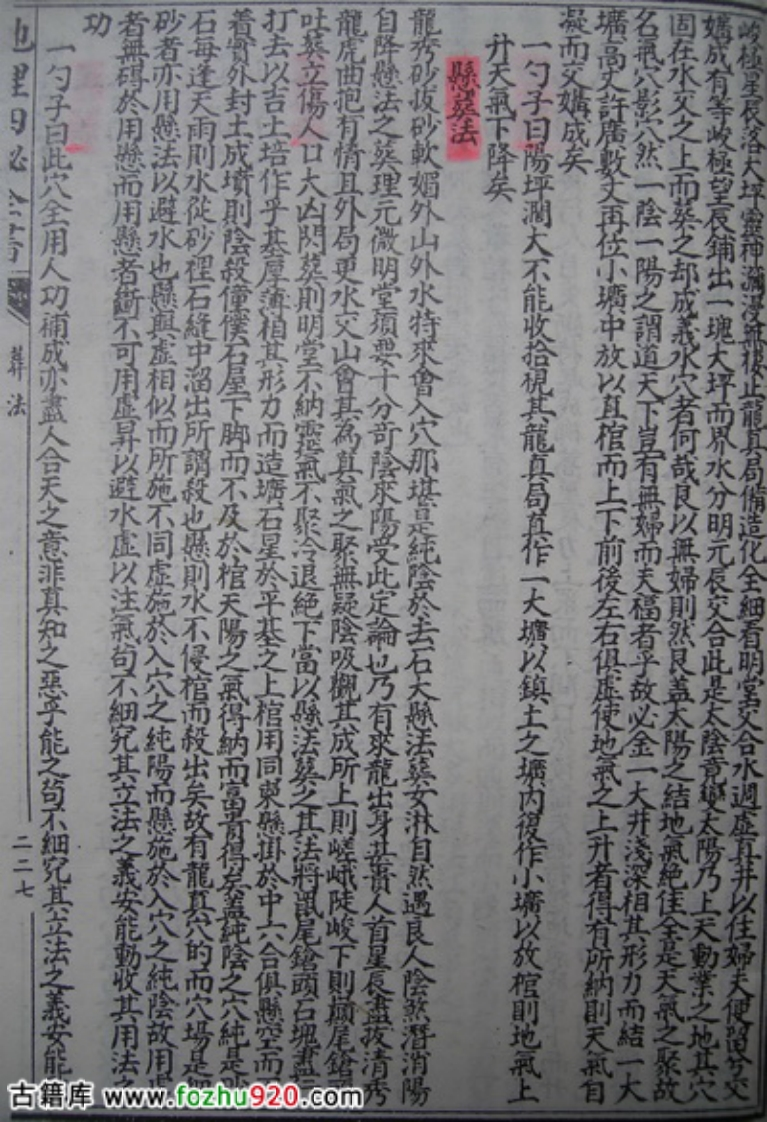 峻極星辰落大坪靈神瀰漫無棲止龍真局備造化全細看明堂交合水週虛真井以住婦夫便留兮交
媾成有等峻極望辰鋪出一塊大坪而界水分明元辰交合此是太陰竟變太陽乃上天動業之地其穴
固在水交之上而葬之却成義水穴者何哉良以無婦則然艮蓋太陽之結地氣絕佳全是天氣之聚故
名氣穴影穴然一陰一陽之謂道天下豈有無婦而夫福者乎故必金一大井淺深相其形力而結一大
壙高丈許廣數丈再位小壙中放以真棺而上下前後左右俱虛使地氣之上升者得有所納則天氣自
凝而交媾成矣
一勺子曰陽坪濶大不能收拾視其龍真局真作一大壙以鎮土之壙內復作小壙以放棺則地氣上
升天氣下降矣
懸葬法
龍秀砂拔砂軟媚外山外水特來會入穴那堪是純陰於去石大縣法葬安淋自然遇良人陰煞潛消陽
自降懸法之葬理元微明堂須要十分奇陰來陽受此定論也乃有來龍出身甚貴人首星辰盡拔清秀
龍虎曲抱有情且外局更水交山會其為真氣之聚無疑陰吸觀其成所上則嵯峨陡峻下則巔尾鎗
吐葬立傷人口大凶閃葬則明堂不納靈氣不聚冷退絕下當以縣法葬之其法將鼠尾鎗頭石塊盡
打去以吉土培作乎基厚薄相其形力而造壙石星於平基之上棺用同東縣掛於中六合俱懸空而
着實外封土成墳則陰殺僮僕石屋下脚而不及於棺天陽之氣得納而富貴得矣蓋純陰之穴純是
石每逢天雨則水從砂裡石縫中溜出所謂殺也懸則水不侵棺而殺出矣故有龍真穴的而穴場是
砂者亦用懸法以避水也懸與虛相似而所施不同虛施於入穴之純陽而懸施於入穴之純陰故用
者無碍於用懸而用懸者斷不可用虛昇以避水虛以注氣苟不細究其立法之義安能動收其用法之
功
一勺子曰此穴全用人功補成亦盡人合天之意非真知之惡乎能之苟不細究其立法之義安能
地理囙秘全書
葬法
二二七
古籍库 www.fozhu920.com